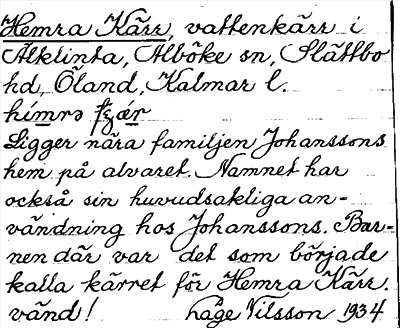 Hemra Kärr, vattenkärr i
Älklinta, Alböke sn, Slättbo
hd, Öland, Kalmar l.
hímrə
Ligger nära familjen Johanssons
hem på alvaret. Namnet har
också sin huvudsakliga an-
vändning hos Johanssons. Bar-
nen där var det som började
kalla kärret för Hemra Kärr.
vänd! Låge Nilsson 1934